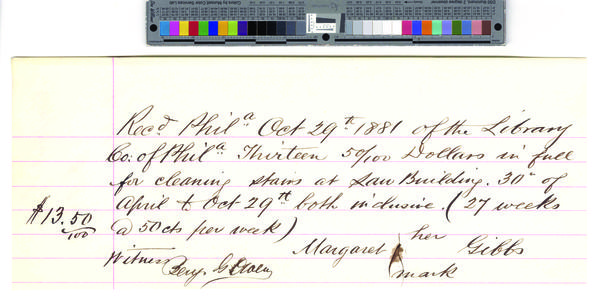 Recd Phila Oct 29th 1881 of the Library
Co: of Phila Thirteen 50/100 Dollars in full
for cleaning stairs at Law Building. 30th of
April & Oct 29th both inclusive. (27 weeks
$13.50/100
@ 50cts per week)
Margaret her Gibbs
mark
Witness
Benj.